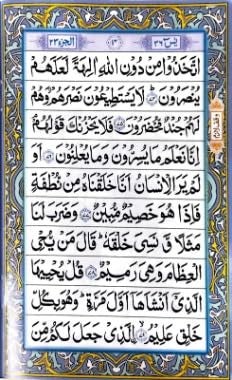 الجزء ٢٣ ١٣ يٰسٓ ٣٦
اتَّخَذُوْا مِنْ دُوْنِ اللّٰهِ اٰلِهَةً لَّعَلَّهُمْ
يُنْصَرُوْنَ ﴿٧٤﴾ لَا يَسْتَطِيْعُوْنَ نَصْرَهُمْ وَهُمْ
لَهُمْ جُنْدٌ مُّحْضَرُوْنَ ﴿٧٥﴾ فَلَا يَحْزُنْكَ قَوْلُهُمْ
اِنَّا نَعْلَمُ مَا يُسِرُّوْنَ وَمَا يُعْلِنُوْنَ ﴿٧٦﴾ اَوَ
لَمْ يَرَ الْاِنْسَانُ اَنَّا خَلَقْنٰهُ مِنْ نُّطْفَةٍ
فَاِذَا هُوَ خَصِيْمٌ مُّبِيْنٌ ﴿٧٧﴾ وَضَرَبَ لَنَا
مَثَلًا وَّنَسِيَ خَلْقَهٗ قَالَ مَنْ يُّحْيِ
الْعِظَامَ وَهِيَ رَمِيْمٌ ﴿٧٨﴾ قُلْ يُحْيِيْهَا
الَّذِيْۤ اَنْشَاَهَاۤ اَوَّلَ مَرَّةٍ وَهُوَ بِكُلِّ
خَلْقٍ عَلِيْمٌ ﴿٧٩﴾ الَّذِيْ جَعَلَ لَكُمْ مِّنَ
وقف لازم